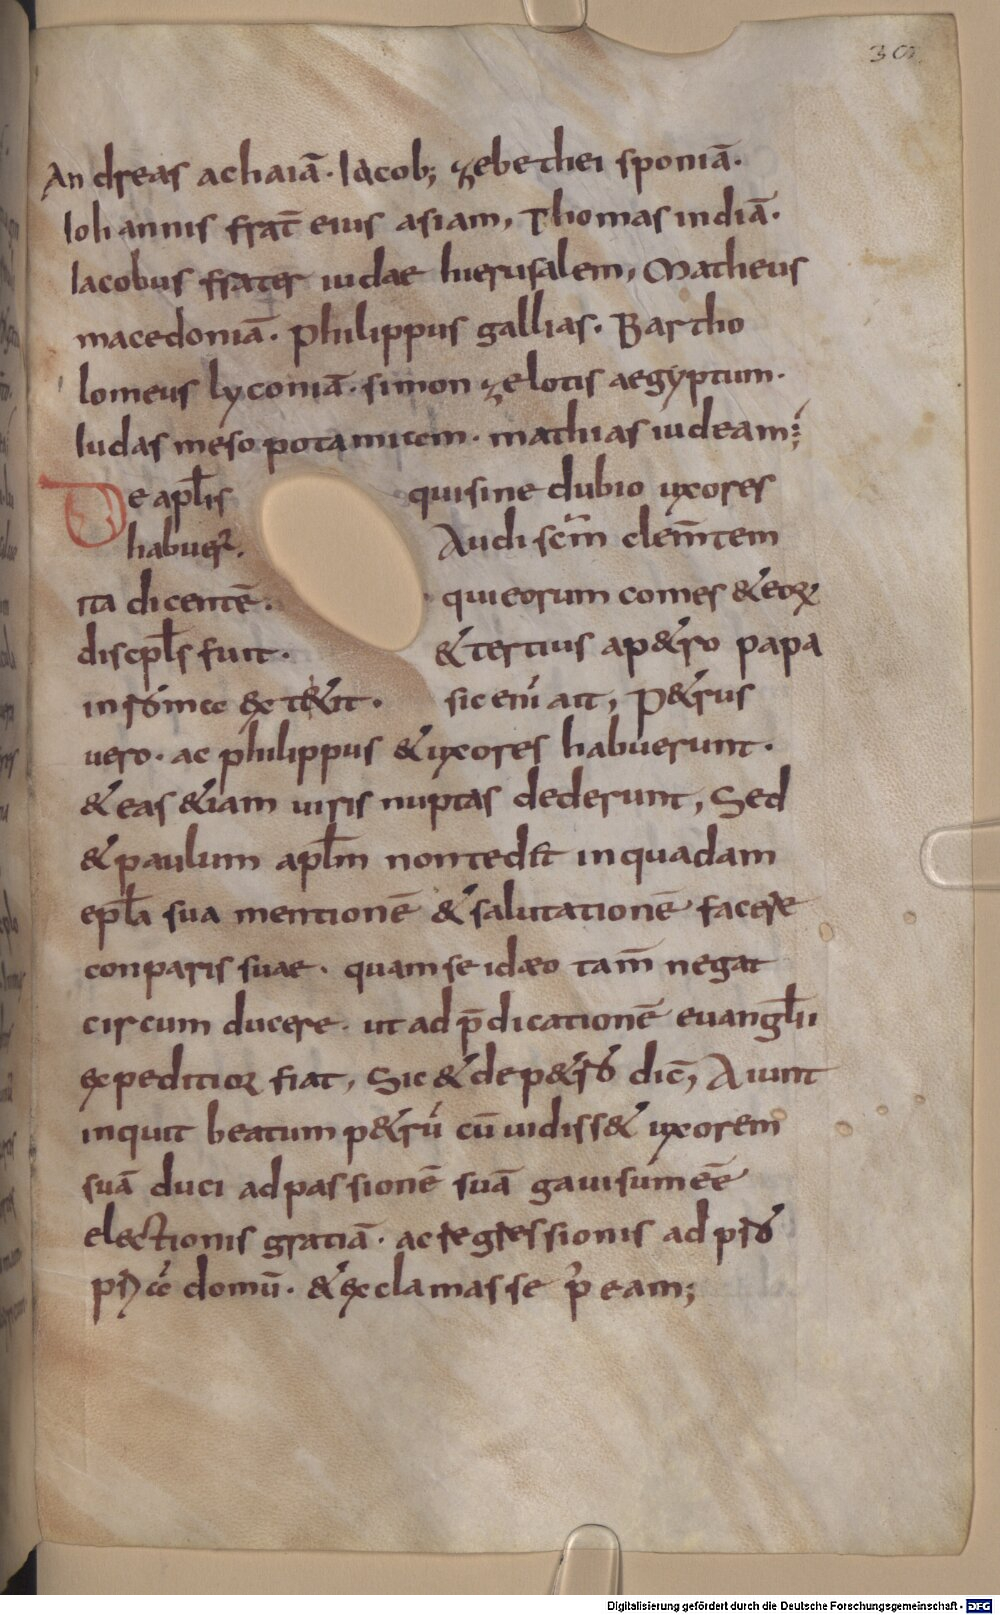 30
Andreas achaiā. Iacob; zebethei sponiā.
Iohannis frat̄ eius asiam, Thomas indiā.
Iacobus frater iudae hierusalem, Matheus
macedoniā. Philippus gallias. Bartho
lomeus lyconiā. simon zelotis aegyptum.
Iudas mesopotamitem. mathias iudeam;
De apl̄is quisine dubio uxores
habuer̄. Audi sc̄m clem̄tem
ita dicentē. qui eorum comes & eoꝝ
discpl̄s fuit. & tertius a p&ro papa
sic eni ait, P&rus
uero. ac philippus & uxores habuerunt.
& eas &iam uiris nuptas dederunt, Sed
& paulum apl̄m non ted& in quadam
epl̄a sua mentionē & salutationē facere
conparis suae. quam se idæo tam̄ negat
circum ducere. ut ad p̄dicationē euangl̄ii
expeditior fiat, Sic & de p&ro dic̄, Aiunt
inquit beatum p&rū cū uidiss& uxorem
suā duci ad passionē suā gauisum eē̄
electionis gratiā. ac regressionis ad
domū. & exclamasse p̄ eam;
Digitalisierung gefördert durch die Deutsche Forschungsgemeinschaft - DFG